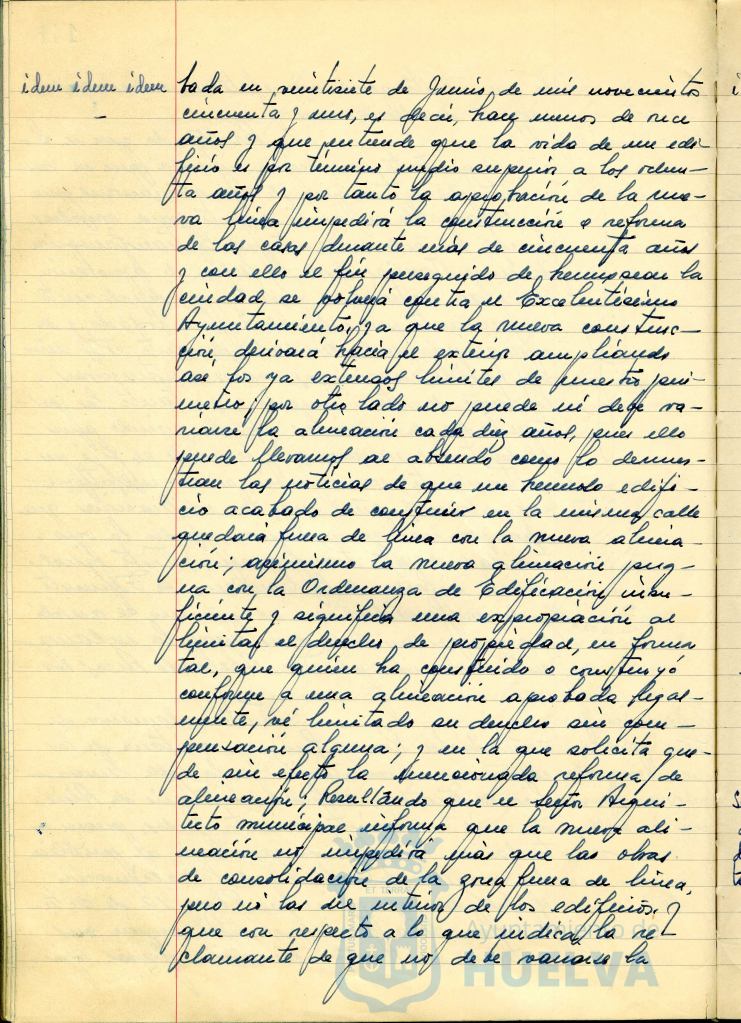 idem idem idem
bada en veintisiete de Junio de mil novecientos
cincuenta y uno, es decir, hace menos de once
años y que entiende que la vida de un edi-
ficio es por término medio superior a los ochen-
ta años y por tanto la aprobación de la nue-
va línea impedirá la construcción o reforma
de las casas durante más de cincuenta años
y con ello el fin perseguido de hermosear la
ciudad, se volverá contra el Excelentísimo
Ayuntamiento, ya que la nueva construc-
ción, derivará hacia el exterior ampliando
así los ya extensos límites de nuestro perí-
metro; por otro lado no puede ni debe va-
riarse la alineación cada diez años, pues ello
puede llevarnos al absurdo como lo demues-
tran las noticias de que un hermoso edifi-
cio acabado de construir en la misma calle
quedará fuera de línea con la nueva alinea-
ción; asimismo la nueva alineación pug-
na con la Ordenanza de Edificación insu-
ficiente y significa una expropiación al
limitar el derecho de propiedad, en forma
tal, que quien ha construido o construyó
conforme a una alineación aprobada legal-
mente, vé limitado su derecho sin com-
pensación alguna; y en la que solicita que-
de sin efecto la mencionada reforma de
alineación; Resultando que el Señor Arqui-
tecto municipal informa que la nueva ali-
neación no impedirá más que las obras
de consolidación de la zona fuera de línea,
pero no las del interior de los edificios. Y
que con respecto a lo que indica la re-
clamante de que no debe variarse la
Ayuntamiento de
HUELVA